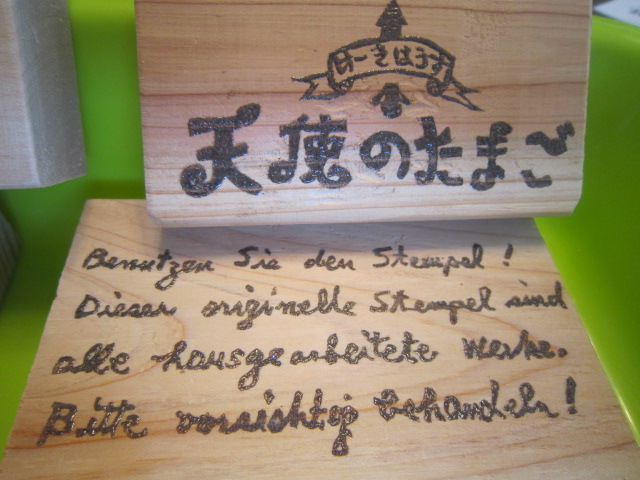 けーきはうす
天使のたまご
Benutzen Sie den Stempel!
Dieser originelle Stempel sind
alle hausgearbeitete Werke.
Bitte vorsichtig behandeln!